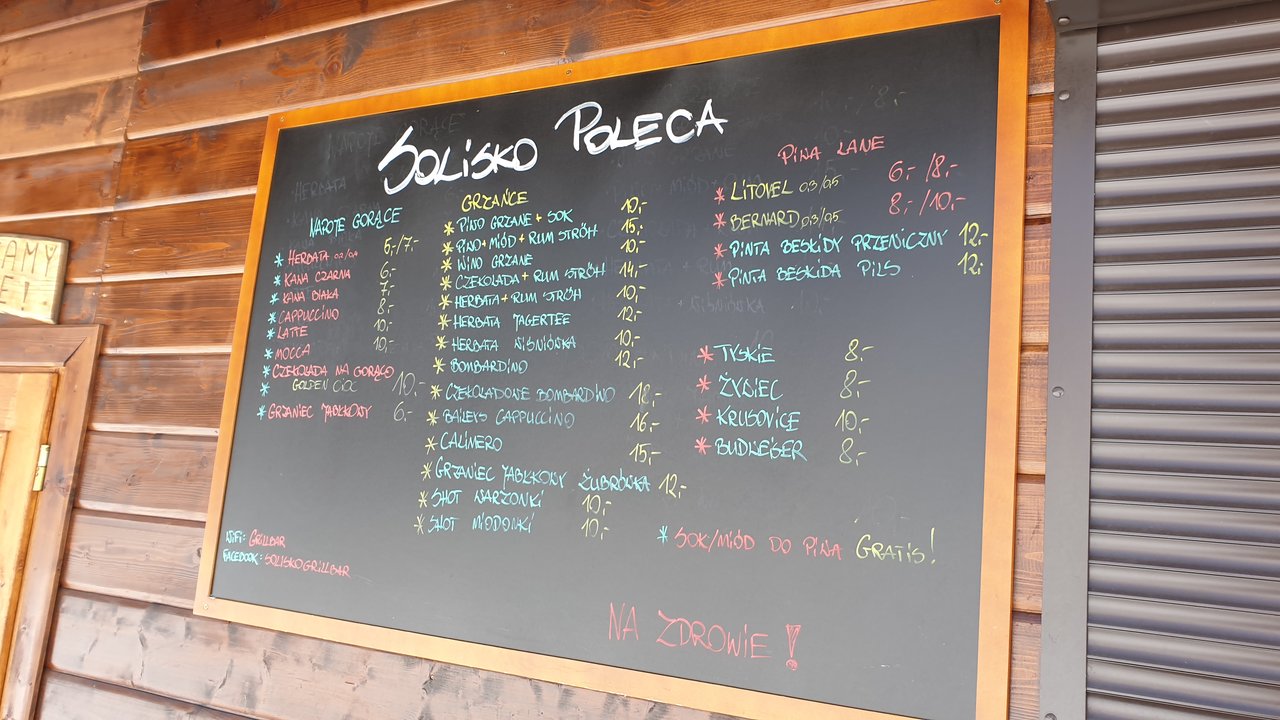 SOLISKO POLECA
NAPOJE GORĄCE
* HERBATA 6,-/7,-
* KAWA CZARNA 6,-
* KAWA BIAŁA 7,-
* CAPPUCCINO 8,-
* LATTE 10,-
* MOCCA 10,-
* CZEKOLADA NA GORĄCO
* GOLDEN CIOC 10,-
* GRZANIEC JABŁKOWY 6,-
GRZAŃCE
* PIWO GRZANE + SOK 10,-
* PIWO + MIÓD + RUM STROH 15,-
* WINO GRZANE 10,-
* CZEKOLADA + RUM STROH 14,-
* HERBATA + RUM STROH 10,-
* HERBATA JAGERTEE 12,-
* HERBATA WIŚNIÓWKA 10,-
* BOMBARDINO 12,-
* CZEKOLADOWE BOMBARDINO 18,-
* BAILEYS CAPPUCCINO 16,-
* CALIMERO 15,-
* GRZANIEC JABŁKOWY ŻUBRÓWKA 12,-
* SHOT WARZONKI 10,-
* SHOT MIODONKI 10,-
PIWA LANE
* LITOVEL 0,3/0,5 6,-/8,-
* BERNARD 0,3/0,5 8,-/10,-
* PINTA BESKIDY PRZENICZNY 12,-
* PINTA BESKIDA PILS 12,-
* TYSKIE 8,-
* ŻYWIEC 8,-
* KRUSOVICE 10,-
* BUDWEISER 8,-
* SOK/MIÓD DO PIWA GRATIS!
WIFI: GRILLBAR
FACEBOOK: SOLISKOGRILLBAR
NA ZDROWIE!